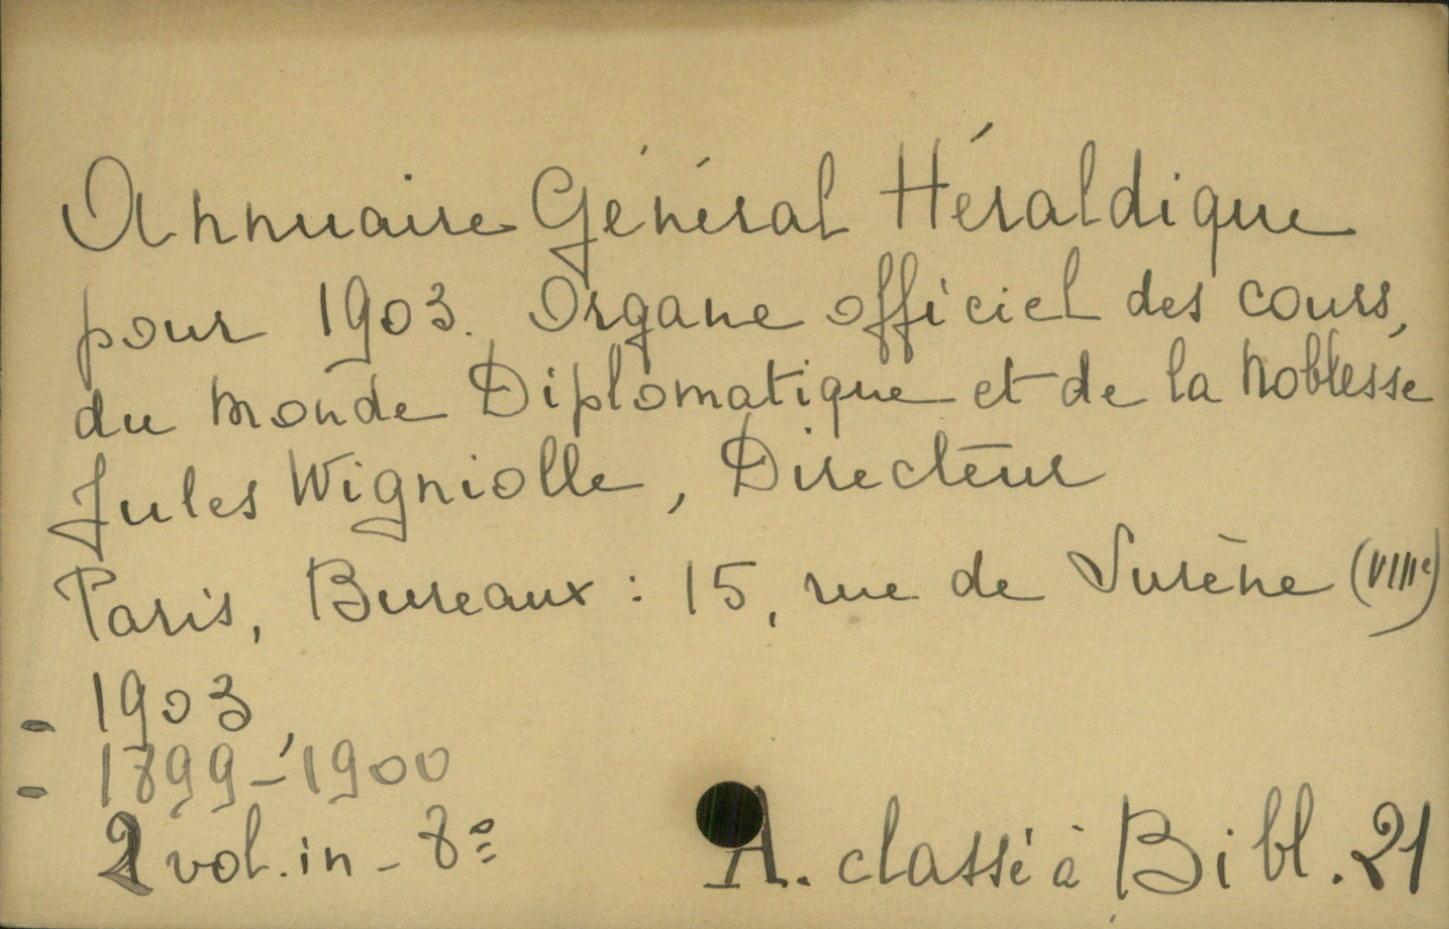 Annuaire Général Héraldique
pour 1903. Organe officiel des cours,
du Monde Diplomatique et de la Noblesse
Jules Wigniolle, Directeur
Paris, Bureaux : 15, rue de Surène (VIIIe)
- 1903,
- 1899-1900
2 vol. in-8º
A. classé à Bibl. 21